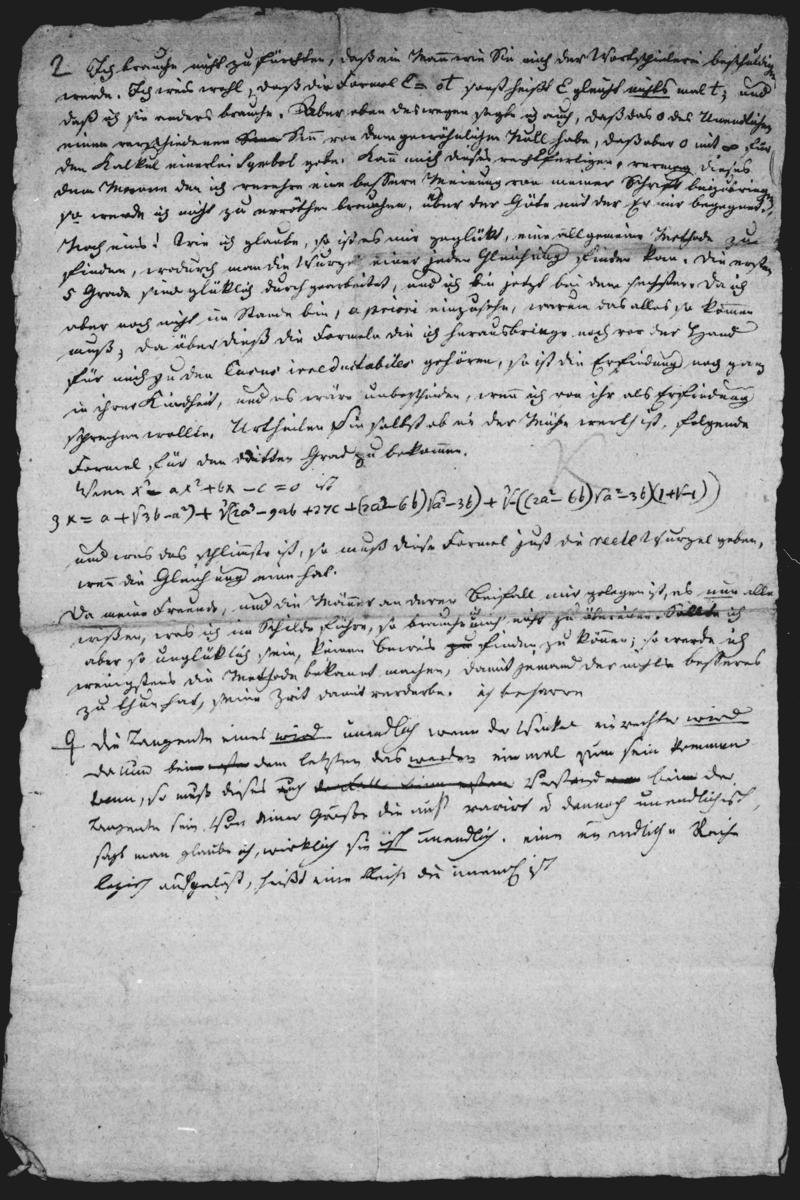 2 Ich brauche nicht zu fürchten, daß ein Mann wie Sie mich der Wortspielerei beschuldigen
werde. Ich weis wohl, daß die Formel C = 0t sonst heißt C gleicht nichts mal t; und
daß ich sie anders brauche. Aber eben deswegen sagte ich auch, daß das 0 des Unendlichen
einen verschiedenen Sinn von dem gewöhnlichen Null habe, daß aber 0 mit ∞ für
den Kalkul einerlei Symbol gebe. Kann mich dieses rechtfertigen, vermag dieses
dem Manne den ich verehre eine bessere Meinung von meiner Schrift beizubringen
so werde ich nicht zu erröthen brauchen, über der Güte mit der Er mir begegnet.
Noch eins! Wie ich glaube, so ist es mir geglükt, eine allgemeine Methode zu
finden, wodurch man die Wurzel einer jeden Gleichung finden kan. Die ersten
5 Grade sind glüklich durchgearbeitet, und ich bin jetzt bei dem sechsten. Da ich
aber noch nicht im Stande bin, a priori einzusehn, warum das alles so kommen
muß; da über dieß die Formeln die ich herausbringe noch vor der Hand
für mich zu den Casus irreductibiles gehören, so ist die Erfindung noch ganz
in ihrer Kindheit, und es wäre unbescheiden, wenn ich von ihr als Erfindung
sprechen wollte. Urtheilen Sie selbst ob es der Mühe werth ist, folgende
Formel für den dritten Grad zu bekommen.
Wenn x³ - ax² + bx - c = 0 ist
3x = a + √3b-a²) + ∛(2a³ - 9ab + 27c + (2a² - 6b)√a² - 3b) + ∛-((2a² - 6b)√a² - 3b)(1+√-1))
und was das schlimmste ist, so muß diese Formel just die reele Wurzel geben,
wenn die Gleichung eine hat.
Da meine Freunde, und die Männer an deren Beifall mir gelegen ist, es nun alle
wissen, was ich im Schilde führe, so brauche ich mich nicht zu übereilen. Sollte ich
aber so unglüklich sein, keinen Beweis zu finden zu können; so werde ich
wenigstens die Methode bekannt machen, damit jemand der nichts besseres
zu thun hat, seine Zeit damit verderbe. ich beharre
Die Tangente eines wird unendlich wenn der Winkel ein rechter wird
Da nun bei dem letzten das werden einmal zum sein kommen
kann, so muß dieses auch bei der
Tangente sein. Von einer Größe die nicht varirt u dennoch unendlich ist,
sagt man glaube ich, wirklich sie ist unendlich. eine unendliche Reihe
logisch aufgelößt, heißt eine Reihe die unendl ist